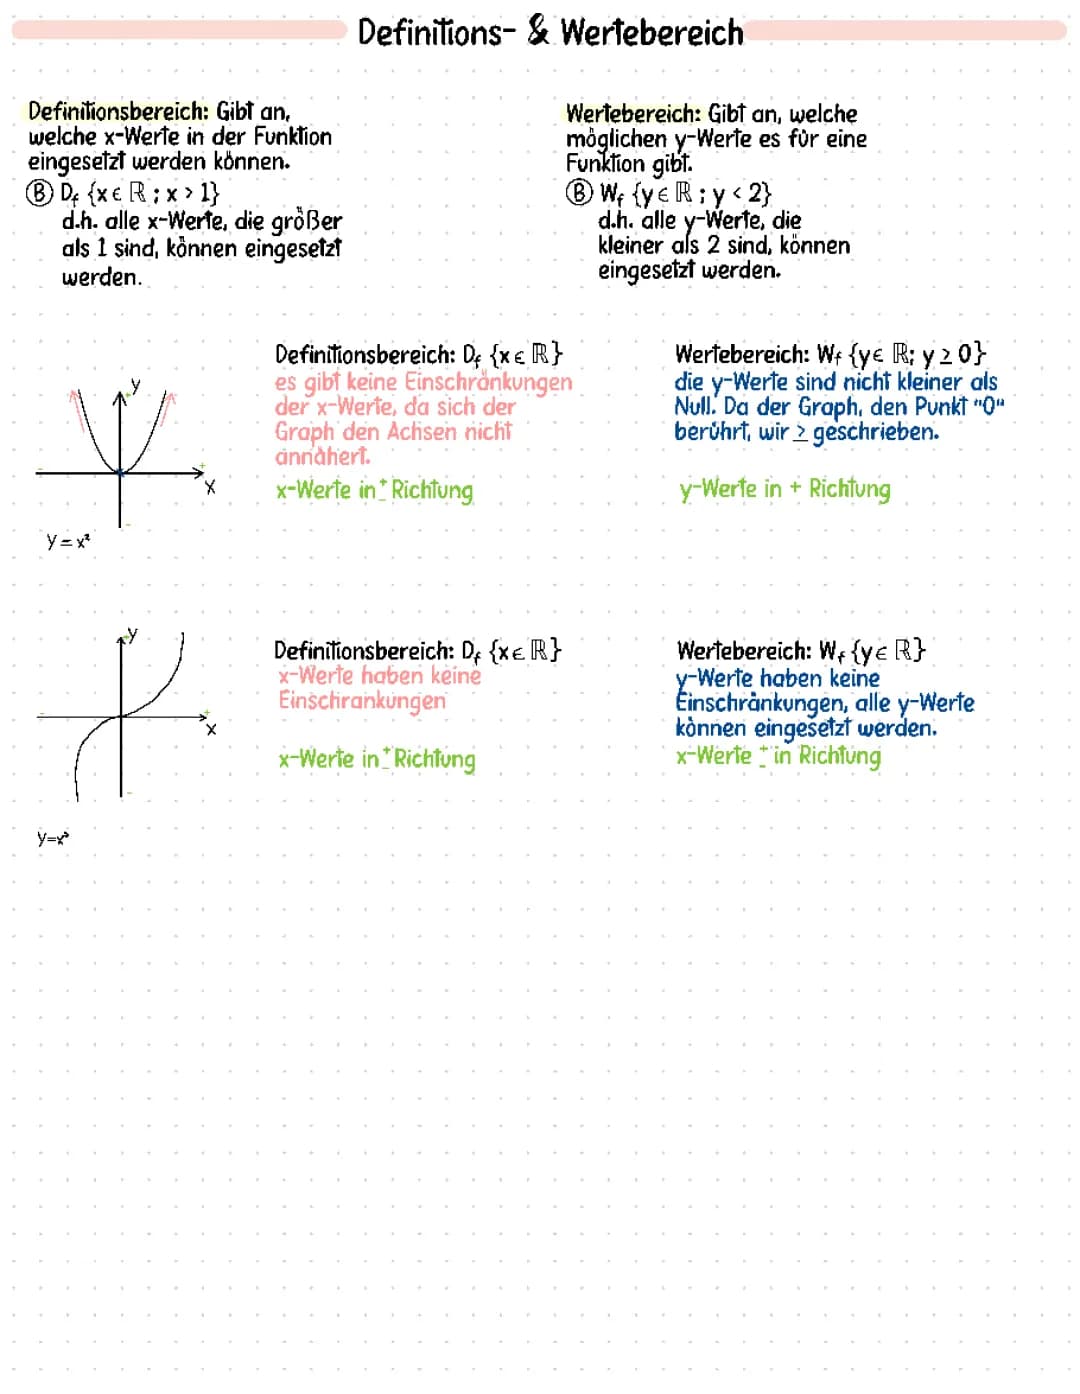 Definitions- & Wertebereich
Definitionsbereich: Gibt an,
welche x-Werte in der Funktion
eingesetzt werden können.
Ⓑ Df {x ∈ ℝ ; x > 1}
d.h. alle x-Werte, die größer
als 1 sind, können eingesetzt
werden.
Wertebereich: Gibt an, welche
möglichen y-Werte es für eine
Funktion gibt.
Ⓑ Wf {y ∈ ℝ ; y < 2}
d.h. alle y-Werte, die
kleiner als 2 sind, können
eingesetzt werden.
y
x
y = x²
Definitionsbereich: Df {x ∈ ℝ}
es gibt keine Einschränkungen
der x-Werte, da sich der
Graph den Achsen nicht
annähert.
x-Werte in ± Richtung
Wertebereich: Wf {y ∈ ℝ; y ≥ 0}
die y-Werte sind nicht kleiner als
Null. Da der Graph, den Punkt "0"
berührt, wir ≥ geschrieben.
y-Werte in + Richtung
y
x
y=x³
Definitionsbereich: Df {x ∈ ℝ}
x-Werte haben keine
Einschränkungen
x-Werte in ± Richtung
Wertebereich: Wf {y ∈ ℝ}
y-Werte haben keine
Einschränkungen, alle y-Werte
können eingesetzt werden.
x-Werte ± in Richtung